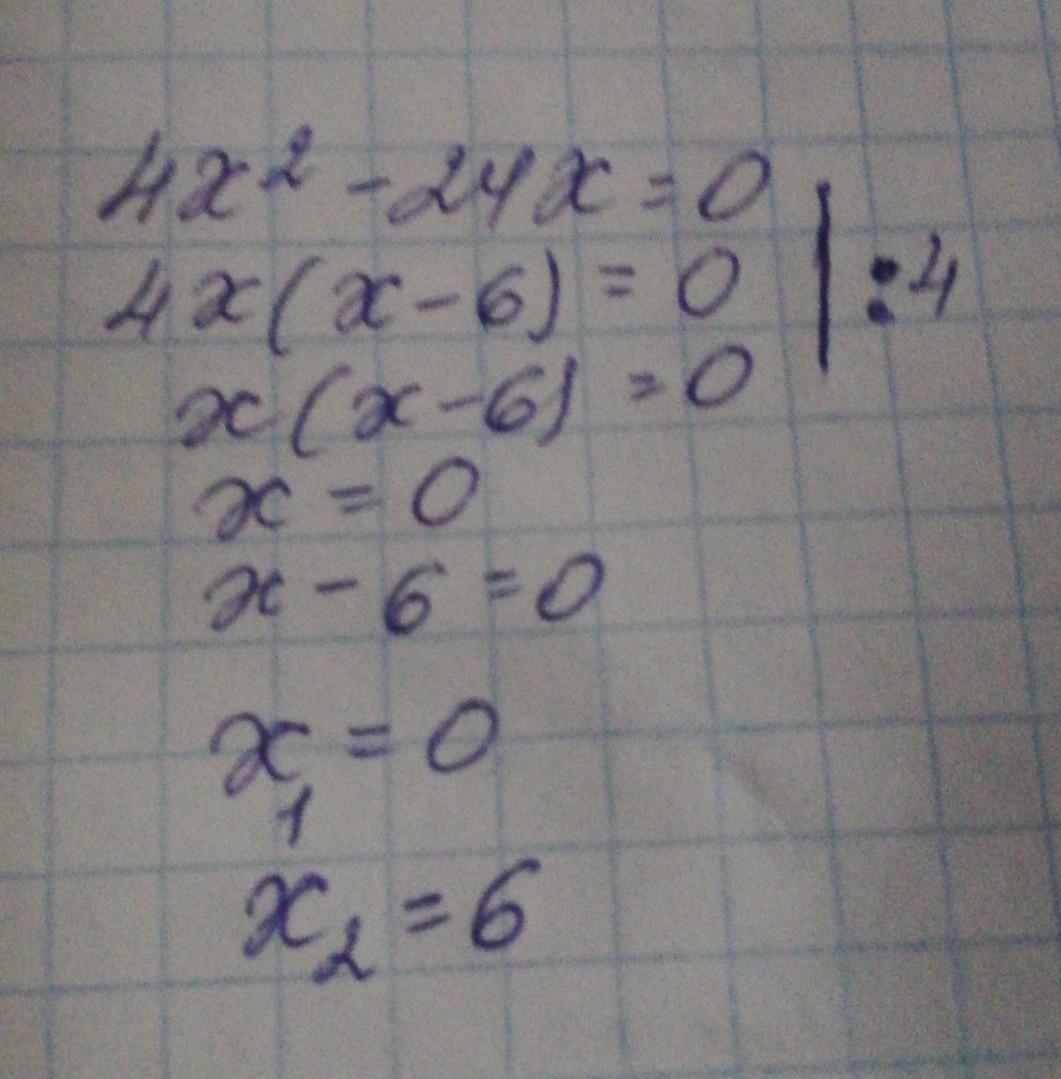 4x² - 24x = 0
4x(x - 6) = 0 | : 4
x(x - 6) = 0
x = 0
x - 6 = 0
x₁ = 0
x₂ = 6